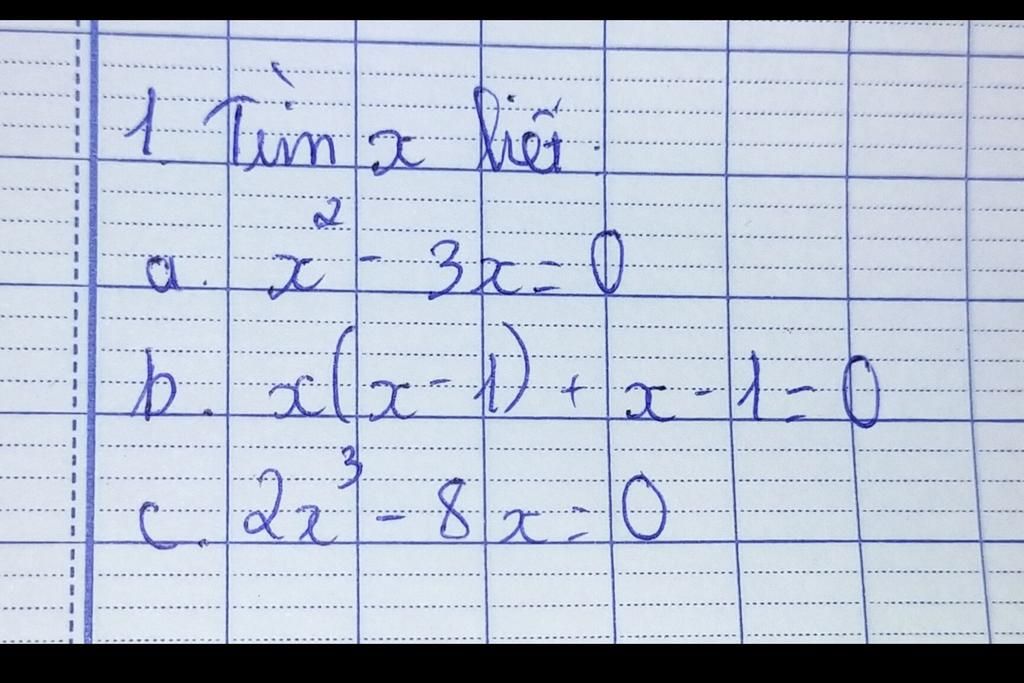 1. Tìm x biết.
a. x² - 3x = 0
b. x(x - 1) + x - 1 = 0
c. 2x³ - 8x = 0